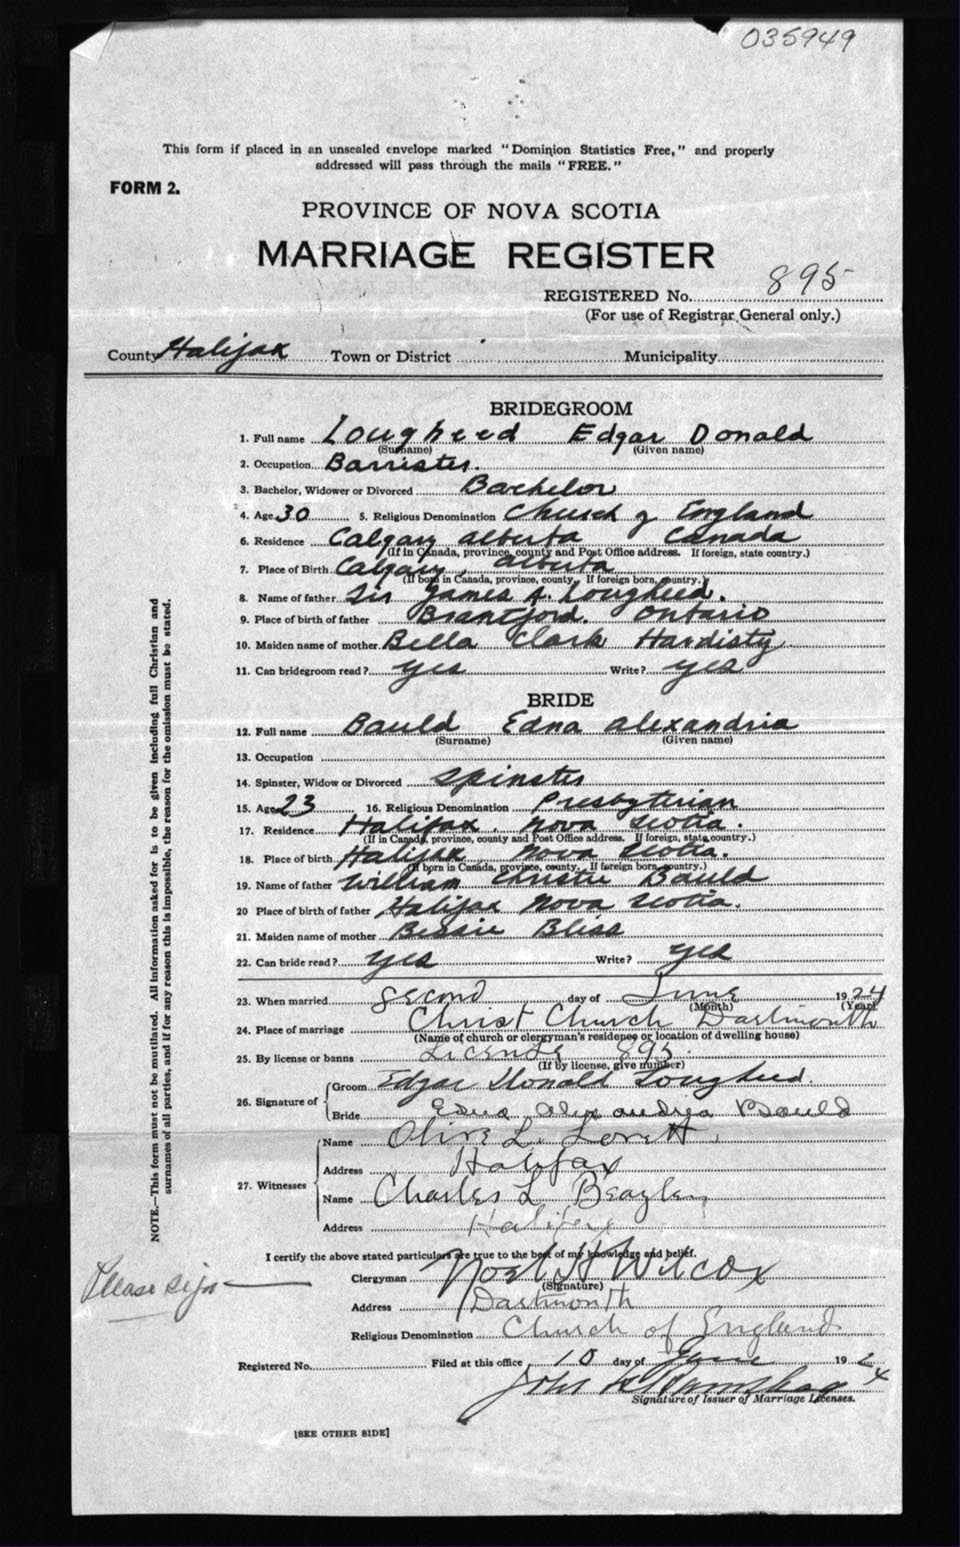 035949
This form if placed in an unsealed envelope marked "Dominion Statistics Free," and properly
addressed will pass through the mails "FREE."
FORM 2.
PROVINCE OF NOVA SCOTIA
MARRIAGE REGISTER
REGISTERED No. 895
(For use of Registrar General only.)
County Halifax Town or District Municipality
BRIDEGROOM
1. Full name Lougheed Edgar Donald
(Surname) (Given name)
2. Occupation Barrister.
3. Bachelor, Widower or Divorced Bachelor
4. Age 30 5. Religious Denomination Church of England
6. Residence Calgary alberta Canada
(If in Canada, province, county and Post Office address. If foreign, state country.)
7. Place of Birth Calgary, alberta
(If born in Canada, province, county. If foreign born, country.)
8. Name of father Sir James A. Lougheed.
9. Place of birth of father Brantford. Ontario
10. Maiden name of mother Bella Clark Hardisty
11. Can bridegroom read? yes Write? yes
BRIDE
12. Full name Bauld Edna alexandria
(Surname) (Given name)
13. Occupation
14. Spinster, Widow or Divorced Spinster
15. Age 23 16. Religious Denomination Presbyterian
17. Residence Halifax. Nova Scotia.
(If in Canada, province, county and Post Office address. If foreign, state country.)
18. Place of birth Halifax Nova Scotia.
(If born in Canada, province, county. If foreign born, country.)
19. Name of father William Christie Bauld
20 Place of birth of father Halifax Nova Scotia.
21. Maiden name of mother Bessie Bliss
22. Can bride read? yes Write? yes
23. When married second day of June 1924
(Month) (Year)
24. Place of marriage Christ Church Dartmouth
(Name of church or clergyman's residence or location of dwelling house)
25. By license or banns License 895.
(If by license, give number)
26. Signature of
Groom Edgar Donald Lougheed.
Bride Edna Alexandra Bauld
27. Witnesses
Name Olive L. Lovett.
Address Halifax
Name Charles L Beazley
Address Halifax
I certify the above stated particulars are true to the best of my knowledge and belief.
Please sign
Clergyman Noel H Wilcox
(Signature)
Address Dartmouth
Religious Denomination Church of England
Registered No. Filed at this office 10 day of June 1924
John
Signature of Issuer of Marriage Licenses.
[SEE OTHER SIDE]
NOTE.—This form must not be mutilated. All information asked for is to be given including full Christian and
surnames of all parties, and if for any reason this is impossible, the reason for the omission must be stated.